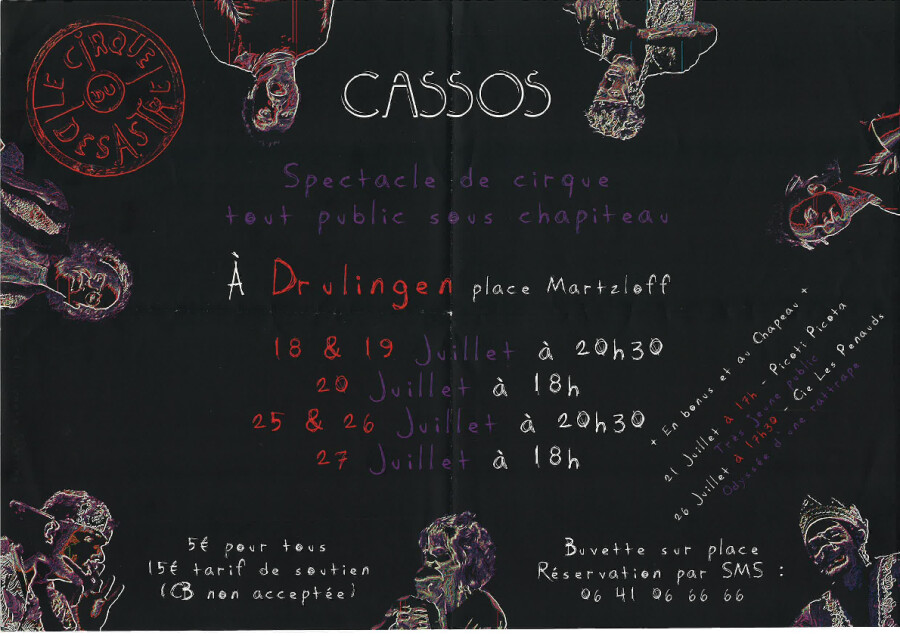 LE CIRQUE
DU
DESASTRE
CASSOS
Spectacle de cirque
tout public sous chapiteau
À Drulingen place Martzloff
18 & 19 Juillet à 20h30
20 Juillet à 18h
25 & 26 Juillet à 20h30
27 Juillet à 18h
+ En bonus et au Chapeau +
21 Juillet à 17h - Picoti Picota
Très jeune public
26 Juillet à 17h30 - Cie Les Penauds
Odyssée d'une rattrape
5€ pour tous
15€ tarif de soutien
(CB non acceptée)
Buvette sur place
Réservation par SMS :
06 41 06 66 66